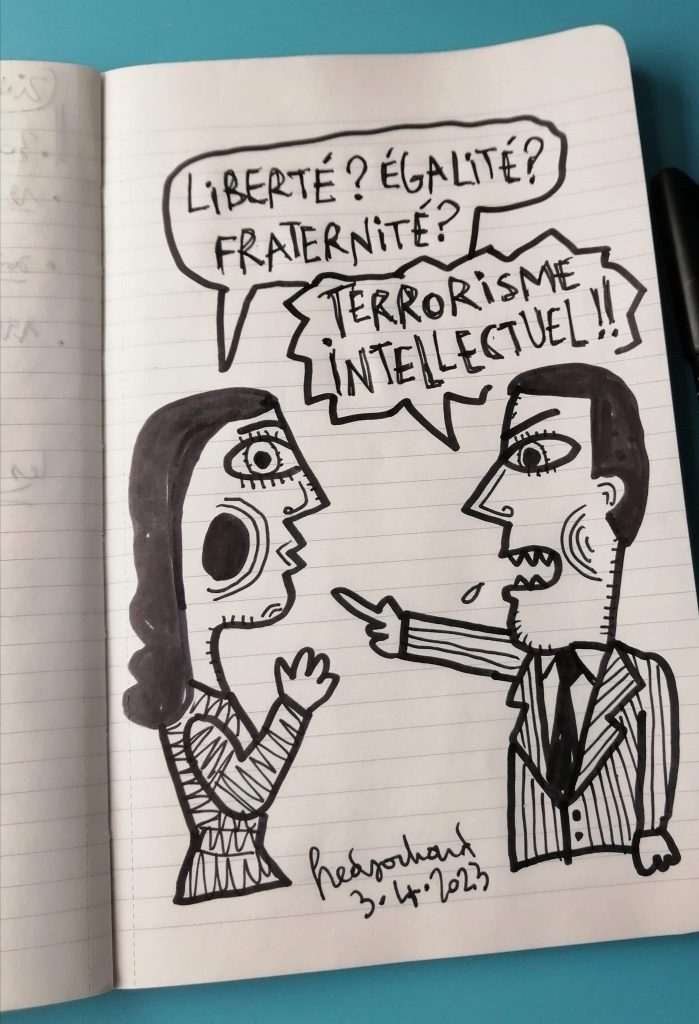 LIBERTÉ? ÉGALITÉ?
FRATERNITÉ?
TERRORISME
INTELLECTUEL!!
3.4.2023